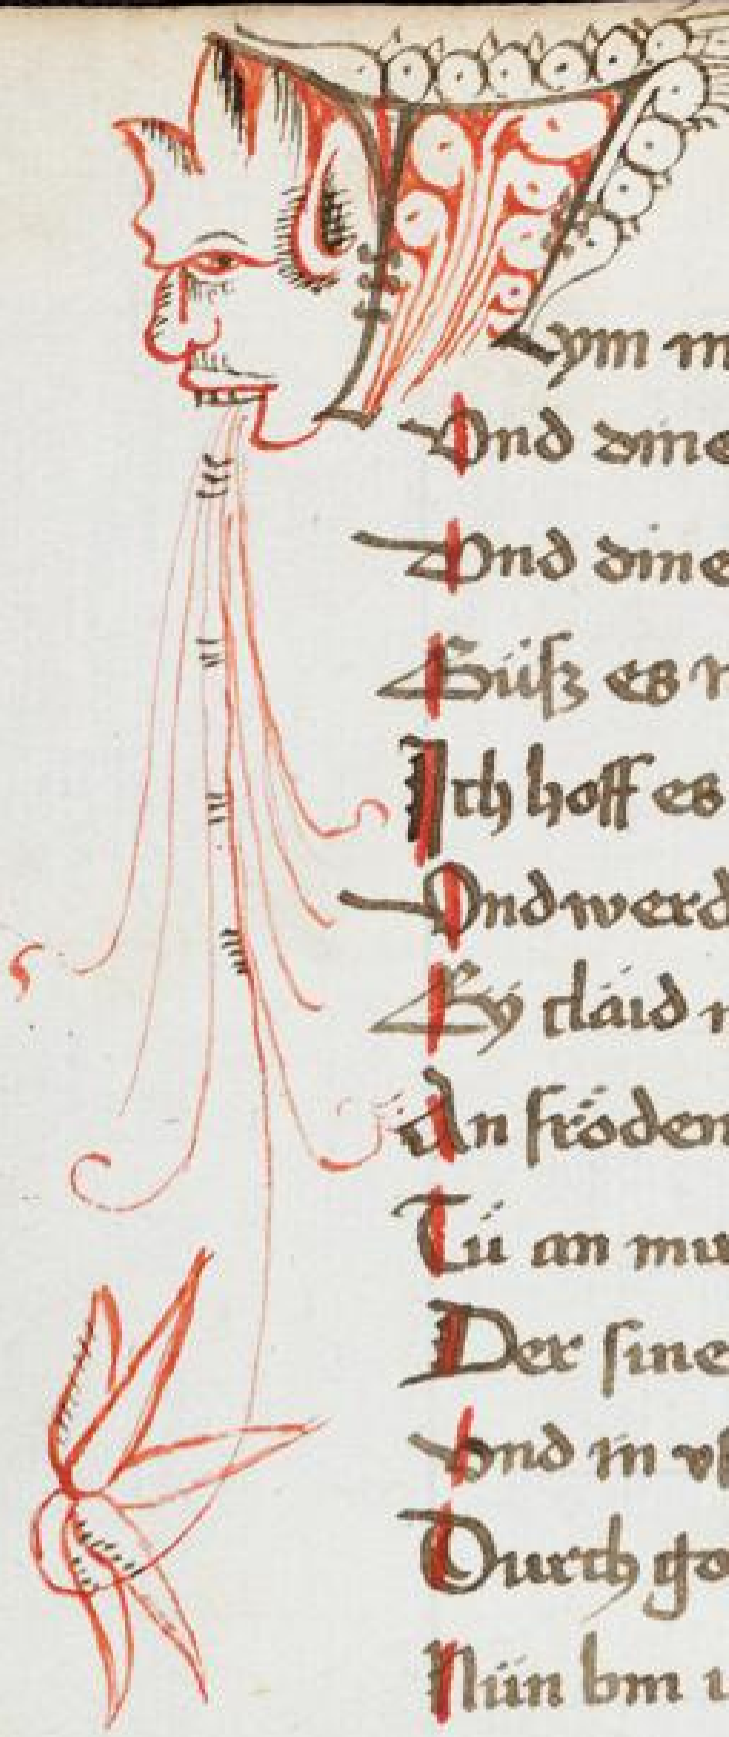 Lym m
Vnd dine
Vnd dine
Süsz es
Ich hoff es
Vnd werd
By claid
An fröden
Tü an mu
Der sine
Vnd in
Durch go
Nün bin